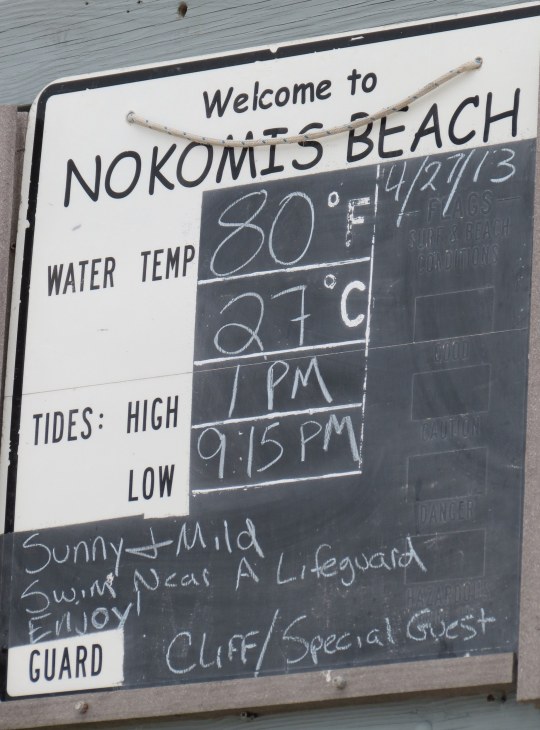 Welcome to
NOKOMIS BEACH
4/27/13
WATER TEMP 80°F
27°C
TIDES: HIGH 1 PM
LOW 9:15 PM
FLAGS
SURF & BEACH
CONDITIONS
GOOD
CAUTION
DANGER
Sunny + Mild
Swim Near A Lifeguard
Enjoy!
GUARD CLIFF/Special Guest